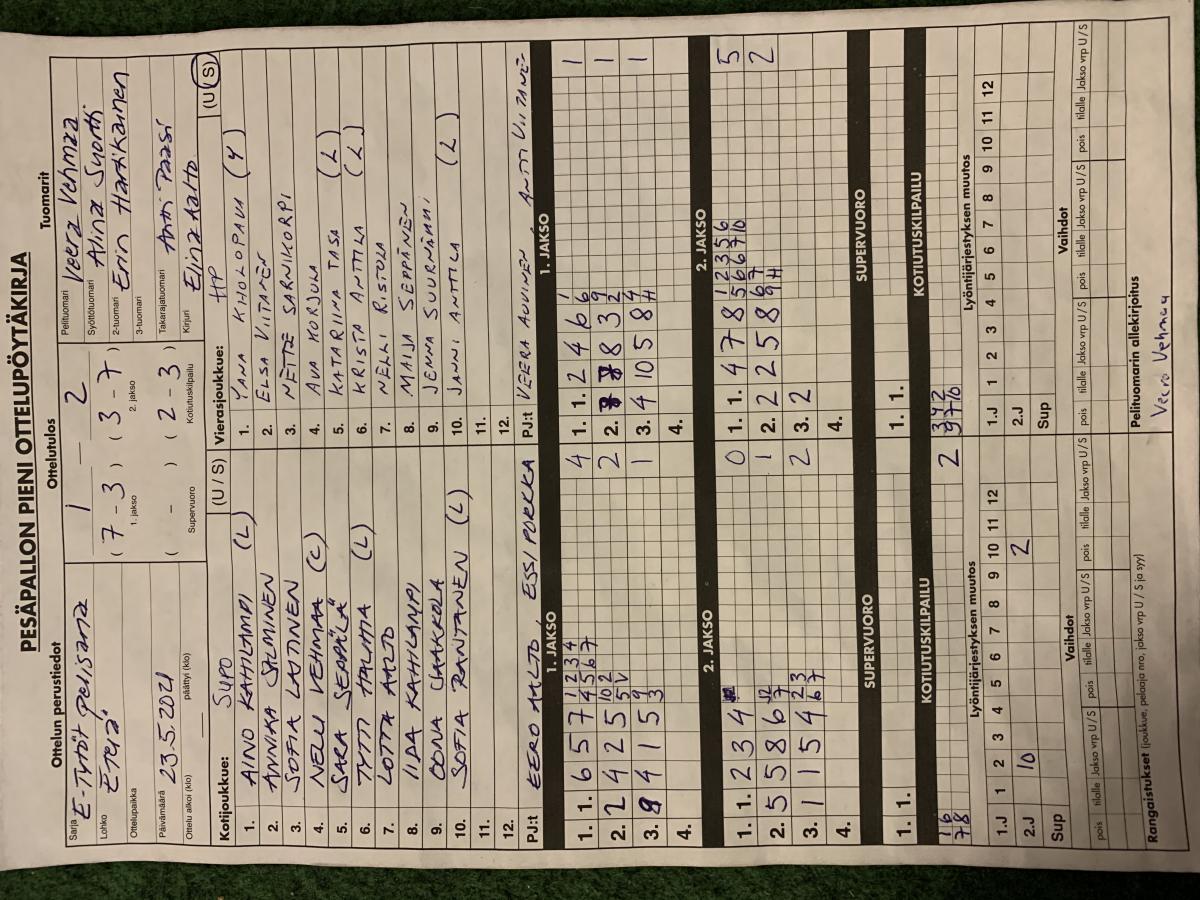 PESÄPALLON PIENI OTTELUPÖYTÄKIRJA
Ottelun perustiedot
Sarja E-Tytöt pelisarja
Lohko Etelä
Ottelupaikka
Päivämäärä 23.5.2021
Ottelu alkoi (klo) päättyi (klo)
Ottelutulos
1 – 2
( 7 - 3 ) ( 3 - 7 )
1. jakso 2. jakso
( - ) ( 2 - 3 )
Supervuoro Kotiutuskilpailu
Tuomarit
Pelituomari Veera Vehmaa
Syöttötuomari Alina Suortti
2-tuomari Erin Hartikainen
3-tuomari
Takarajatuomari Antti Paasi
Kirjuri Elina Kalto
Kotijoukkue: SuPo (U / S)
1. AINO KAHILAMPI (L)
2. ANNIKA SALMINEN
3. SOFIA LAITINEN
4. NELLI VEHMAA (L)
5. SARA SEPPÄLÄ
6. TYTTI HALMIA (L)
7. LOTTA AALTO
8. IIDA KAHILAMPI
9. OONA JAAKKOLA
10. SOFIA RANTANEN (L)
11.
12.
PJ:t EERO AALTO, ESSI PORKKA
Vierasjoukkue: HP (U / S)
1. YANA KIHOLOPAVA (Y)
2. ELSA VIITANEN
3. NETTE SARNIKORPI
4. AVA KORJULA
5. KATARIINA TASA (L)
6. KRISTA ANTTILA (L)
7. NELLI RISTOLA
8. MAIJA SEPPÄNEN
9. JENNA SUURNÄKKI
10. JANNI ANTTILA (L)
11.
12.
PJ:t VEERA AUVINEN, ANTTI VIITANEN
1. JAKSO 1. JAKSO
1. 1. 6 5 7 4 1 2 3 4 4 5 6 7 4
2. 2 4 2 5 10 2 5 V 2
3. 4 1 5 9 3 1
4.
1. 1. 2 4 6 1 6 1
2. 8 3 9 2 1
3. 4 10 5 8 4 H 1
4.
2. JAKSO 2. JAKSO
1. 1. 2 3 4 0
2. 5 5 8 6 7 1
3. 1 1 5 4 2 3 6 7 2
4.
1. 1. 4 7 8 1 2 3 5 6 5 6 6 7 10 5
2. 2 2 5 8 6 7 9 H 2
3. 2 2
4.
SUPERVUORO SUPERVUORO
1. 1.
1. 1.
KOTIUTUSKILPAILU KOTIUTUSKILPAILU
1 6
7 8
2
3 4 2
9 7 10
Lyöntijärjestyksen muutos
1 2 3 4 5 6 7 8 9 10 11 12
1.J
2.J 10 2
Sup
Lyöntijärjestyksen muutos
1 2 3 4 5 6 7 8 9 10 11 12
1.J
2.J
Sup
Vaihdot
pois tilalle Jakso vrp U / S pois tilalle Jakso vrp U / S pois tilalle Jakso vrp U / S
Vaihdot
pois tilalle Jakso vrp U / S pois tilalle Jakso vrp U / S pois tilalle Jakso vrp U / S
Rangaistukset (joukkue, pelaaja nro, jakso vrp U / S ja syy)
Pelituomarin allekirjoitus
Veera Vehmaa